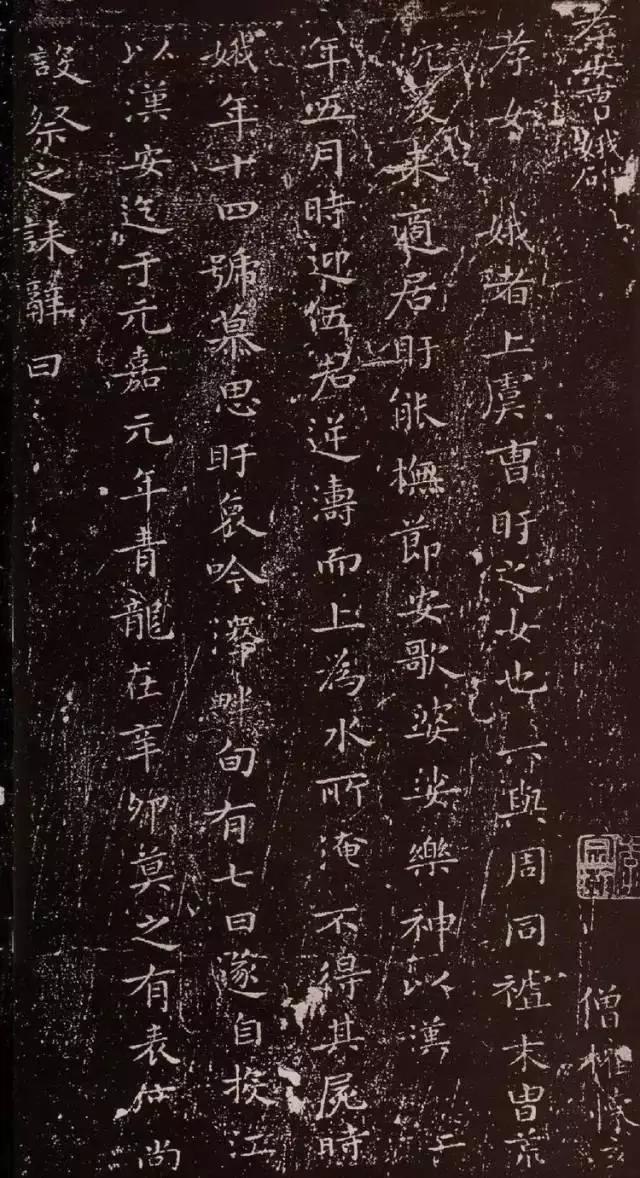 孝女曹娥碑
孝女　娥者上虞曹盱之女也其先與周同祖末胄荒
沉爰来適居盱能撫節安歌婆娑樂神以漢　二
年五月時迎伍君逆濤而上為水所淹不得其屍時
娥年十四號慕思盱哀吟澤畔旬有七日遂自投江
以漢安迄于元嘉元年青龍在辛卯莫之有表度尚
設祭之誄辭曰
僧權